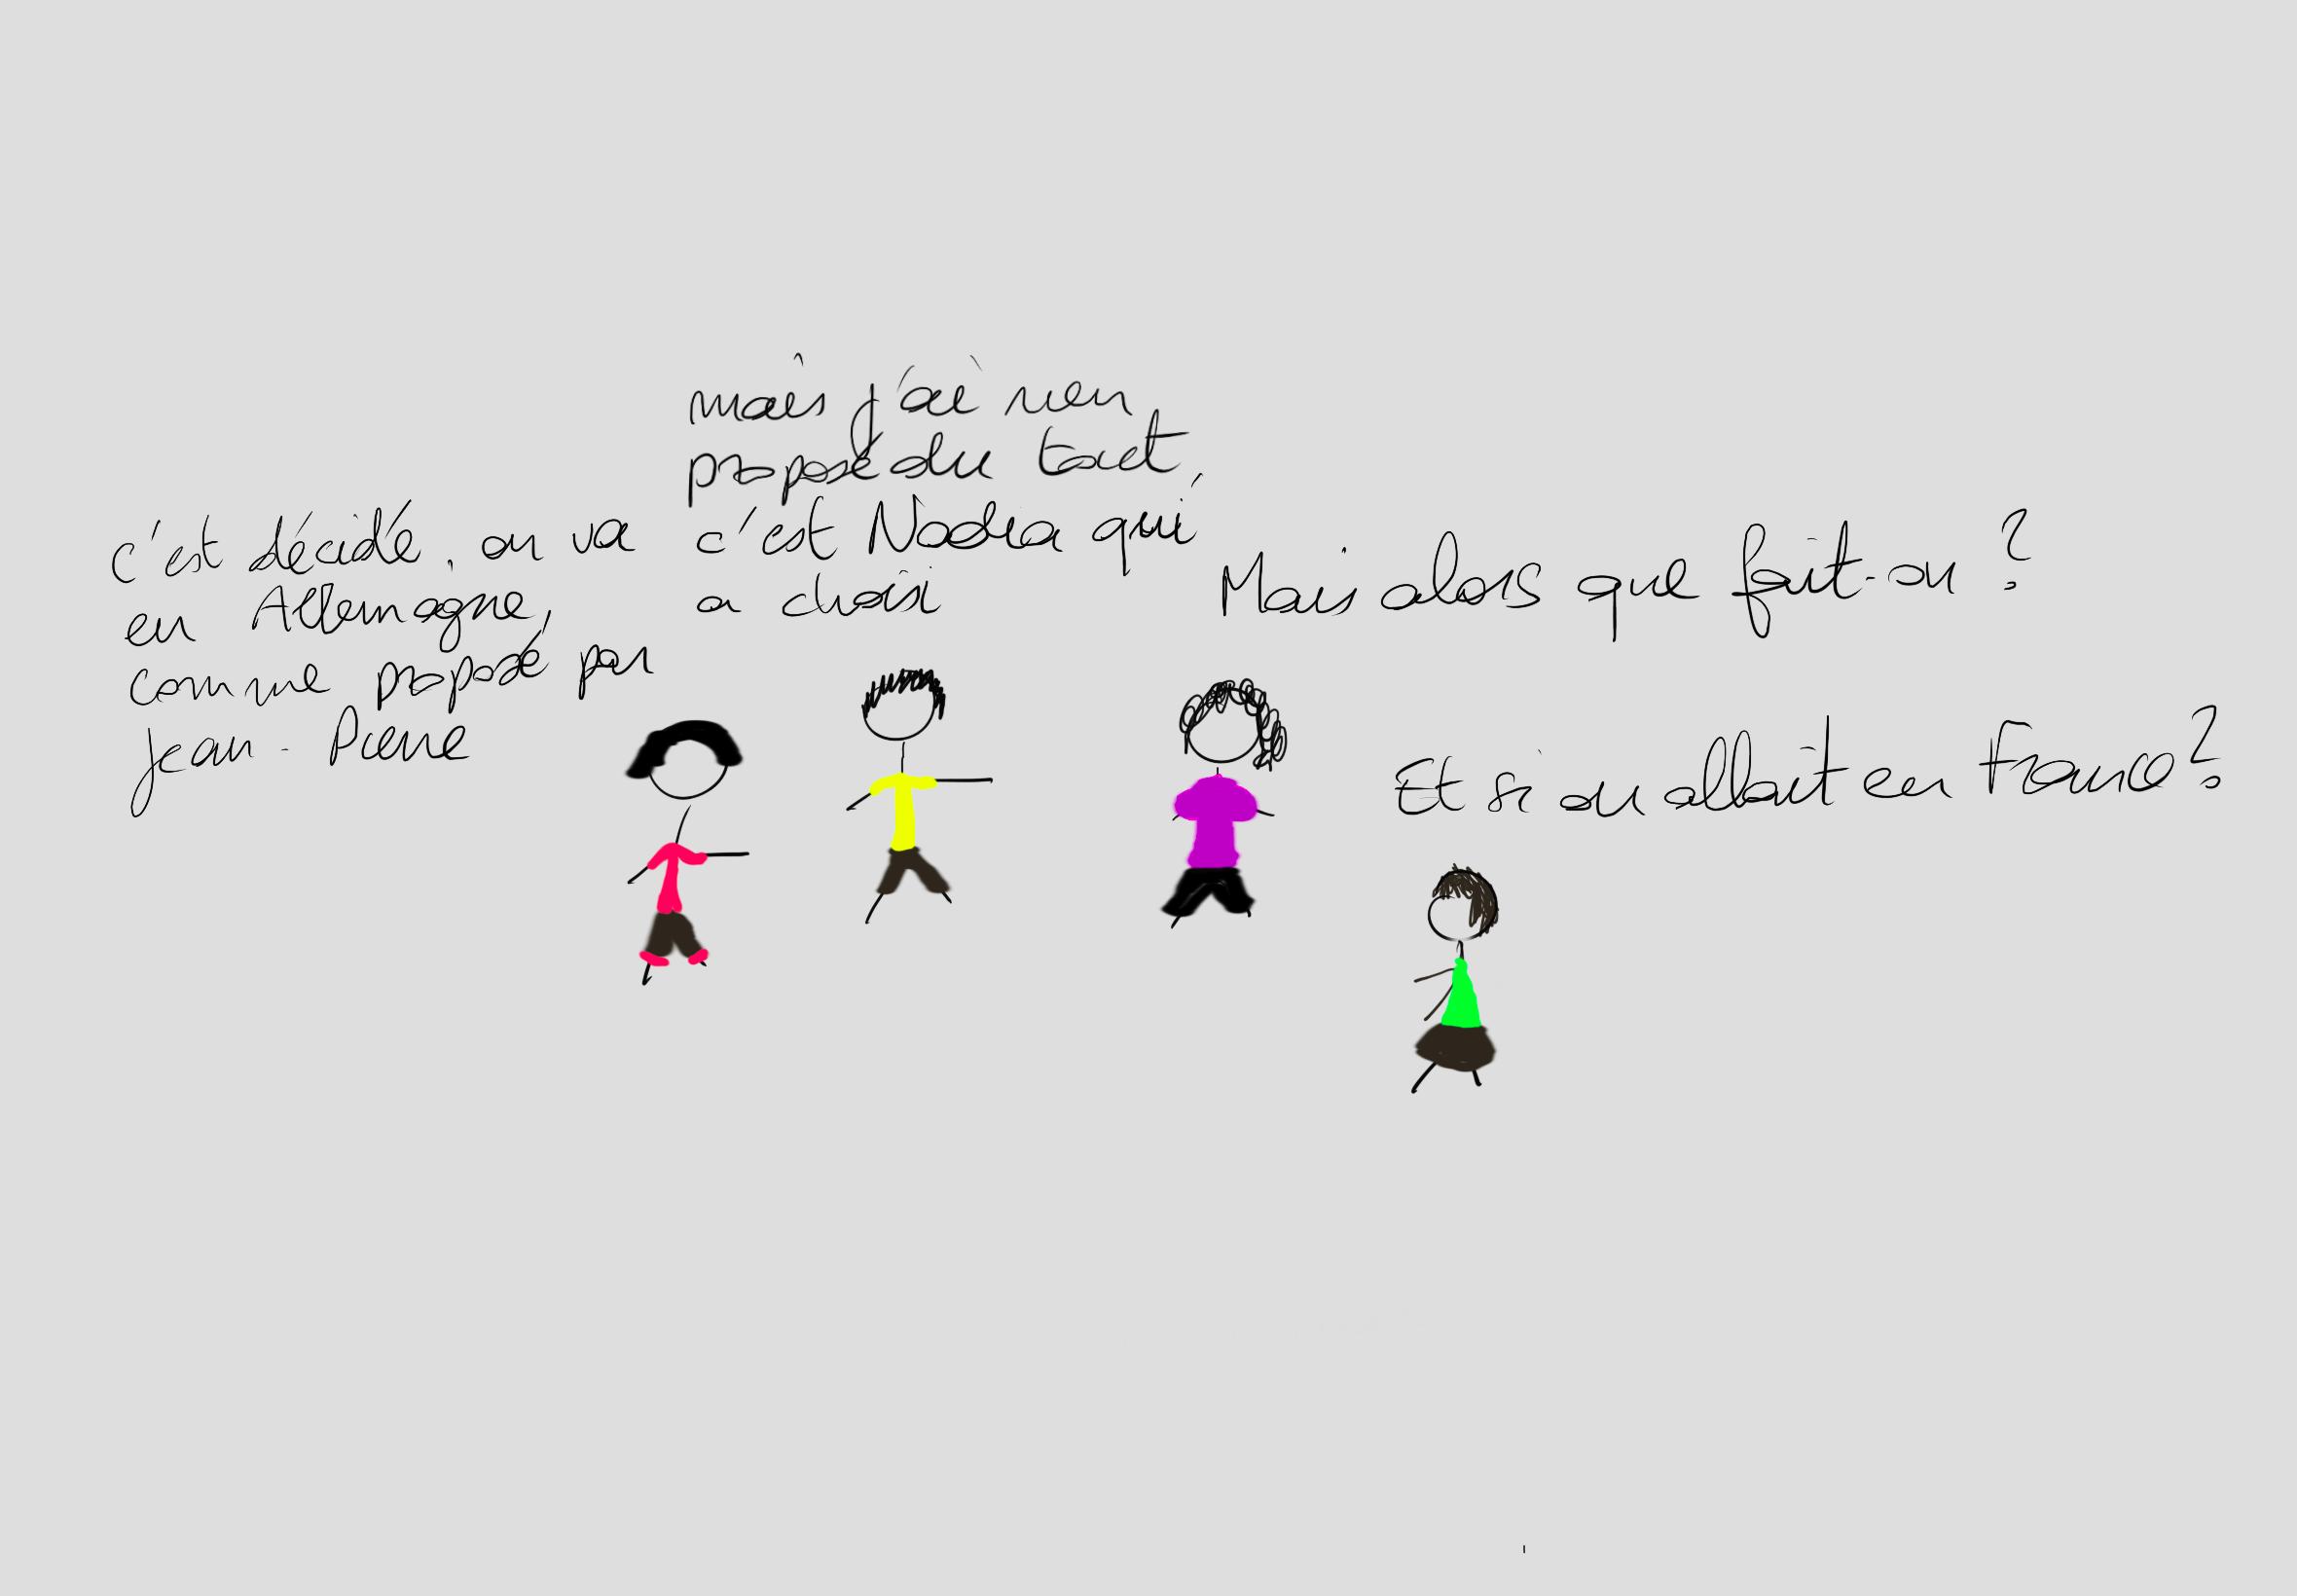 c'est décidé, on va
en Allemagne,
comme proposé par
Jean-Pierre
mais j'ai rien
proposé du tout,
c'est Nadia qui
a choisi
Mais alors que fait-on ?
Et si on allait en France ?